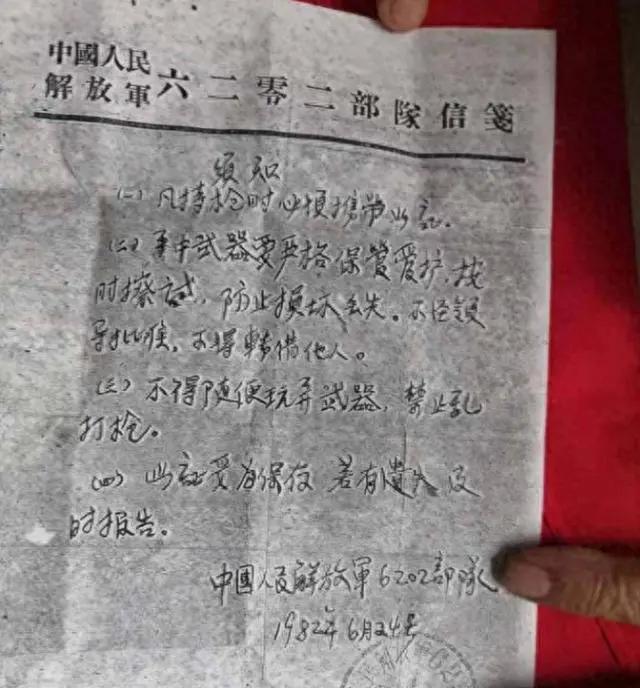 中國人民
解放軍六二零二部隊信箋
须知
(一) 凡持枪时必须携带此証.
(二) 手中武器要严格保管爱护,按
时擦试,防止损坏丢失。不经领
导批准,不得轉借他人。
(三) 不得随便玩弄武器,禁止乱
打枪。
(四) 此証妥为保存 若有遺失 及
时报告。
中國人民解放軍6202部隊
1982年6月24号